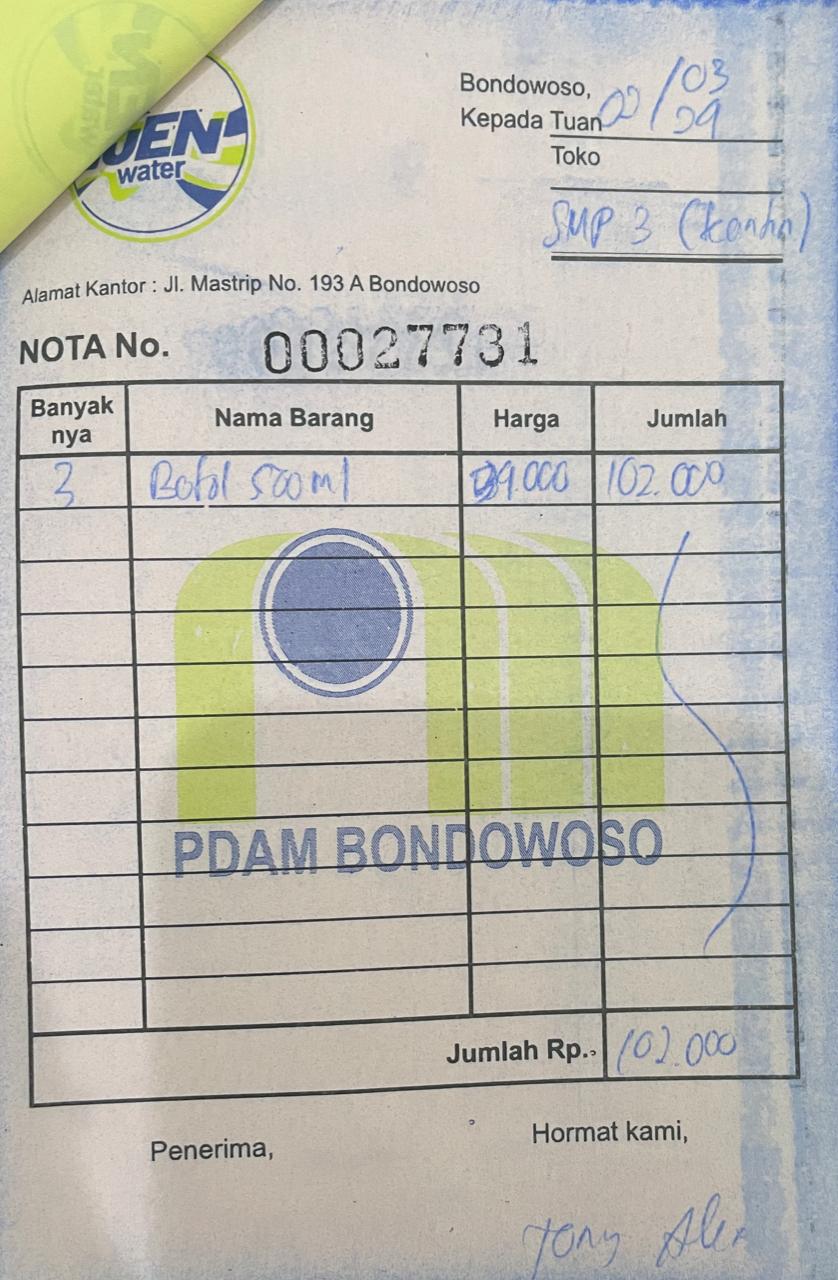 water
Bondowoso, /03
Kepada Tuan
Toko
SMP 3
Alamat Kantor : Jl. Mastrip No. 193 A Bondowoso
NOTA No. 00027731
Banyak nya Nama Barang Harga Jumlah
3 Botol 500 ml 102.000
PDAM BONDOWOSO
Jumlah Rp. 102.000
Penerima, Hormat kami,
Tony